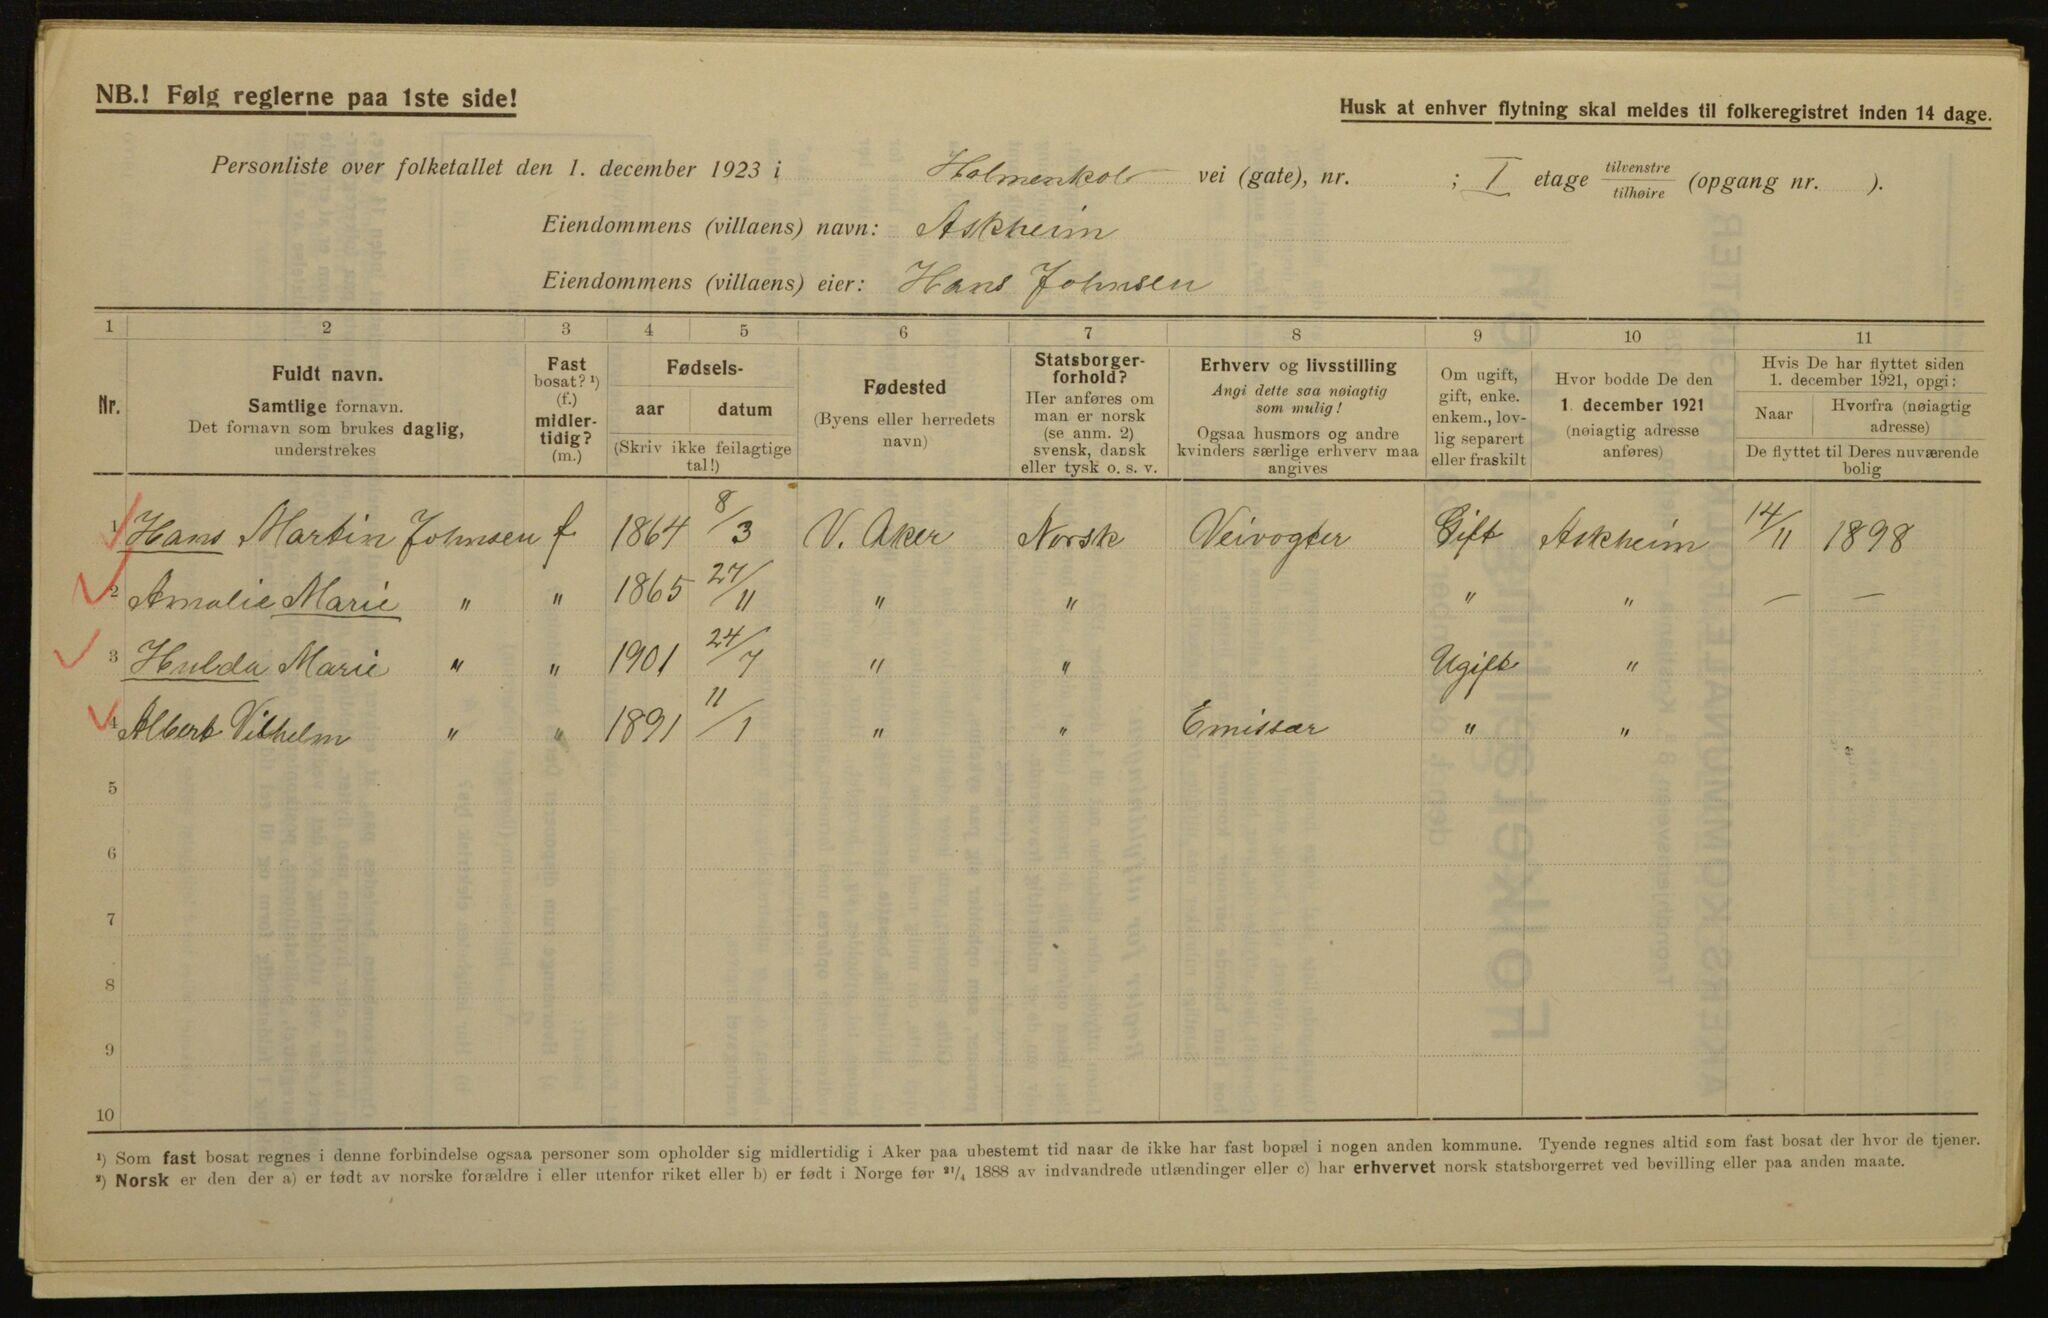 NB.! Følg reglerne paa 1ste side!
Husk at enhver flytning skal meldes til folkeregistret inden 14 dage.
Personliste over folketallet den 1. december 1923 i Holmenkol vei (gate), nr. ; I etage tilvenstre/tilhøire (opgang nr. ).
Eiendommens (villaens) navn: Askheim
Eiendommens (villaens) eier: Hans Johnsen
1 2 3 4 5 6 7 8 9 10 11
Nr.
Fuldt navn.
Samtlige fornavn.
Det fornavn som brukes daglig,
understrekes
Fast
bosat? ¹)
(f.)
midler-
tidig?
(m.)
Fødsels-
aar datum
(Skriv ikke feilagtige
tal!)
Fødested
(Byens eller herredets
navn)
Statsborger-
forhold?
Her anføres om
man er norsk
(se anm. 2)
svensk, dansk
eller tysk o. s. v.
Erhverv og livsstilling
Angi dette saa nøiagtig
som mulig!
Ogsaa husmors og andre
kvinders særlige erhverv maa
angives
Om ugift,
gift, enke.
enkem., lov-
lig separert
eller fraskilt
Hvor bodde De den
1. december 1921
(nøiagtig adresse
anføres)
Hvis De har flyttet siden
1. december 1921, opgi:
Naar Hvorfra (nøiagtig
adresse)
De flyttet til Deres nuværende
bolig
1 Hans Martin Johnsen f 1864 8/3 V. Aker Norsk Veivogter Gift Askheim 14/11 1898
2 Amalie Marie " " 1865 27/11 " " " " — —
3 Hulda Marie " " 1901 24/7 " " Ugift "
4 Albert Vilhelm " " 1891 11/1 " " Emissær " "
5
6
7
8
9
10
¹) Som fast bosat regnes i denne forbindelse ogsaa personer som opholder sig midlertidig i Aker paa ubestemt tid naar de ikke har fast bopæl i nogen anden kommune. Tyende regnes altid som fast bosat der hvor de tjener.
²) Norsk er den der a) er født av norske forældre i eller utenfor riket eller b) er født i Norge før ²¹/₄ 1888 av indvandrede utlændinger eller c) har erhvervet norsk statsborgerret ved bevilling eller paa anden maate.